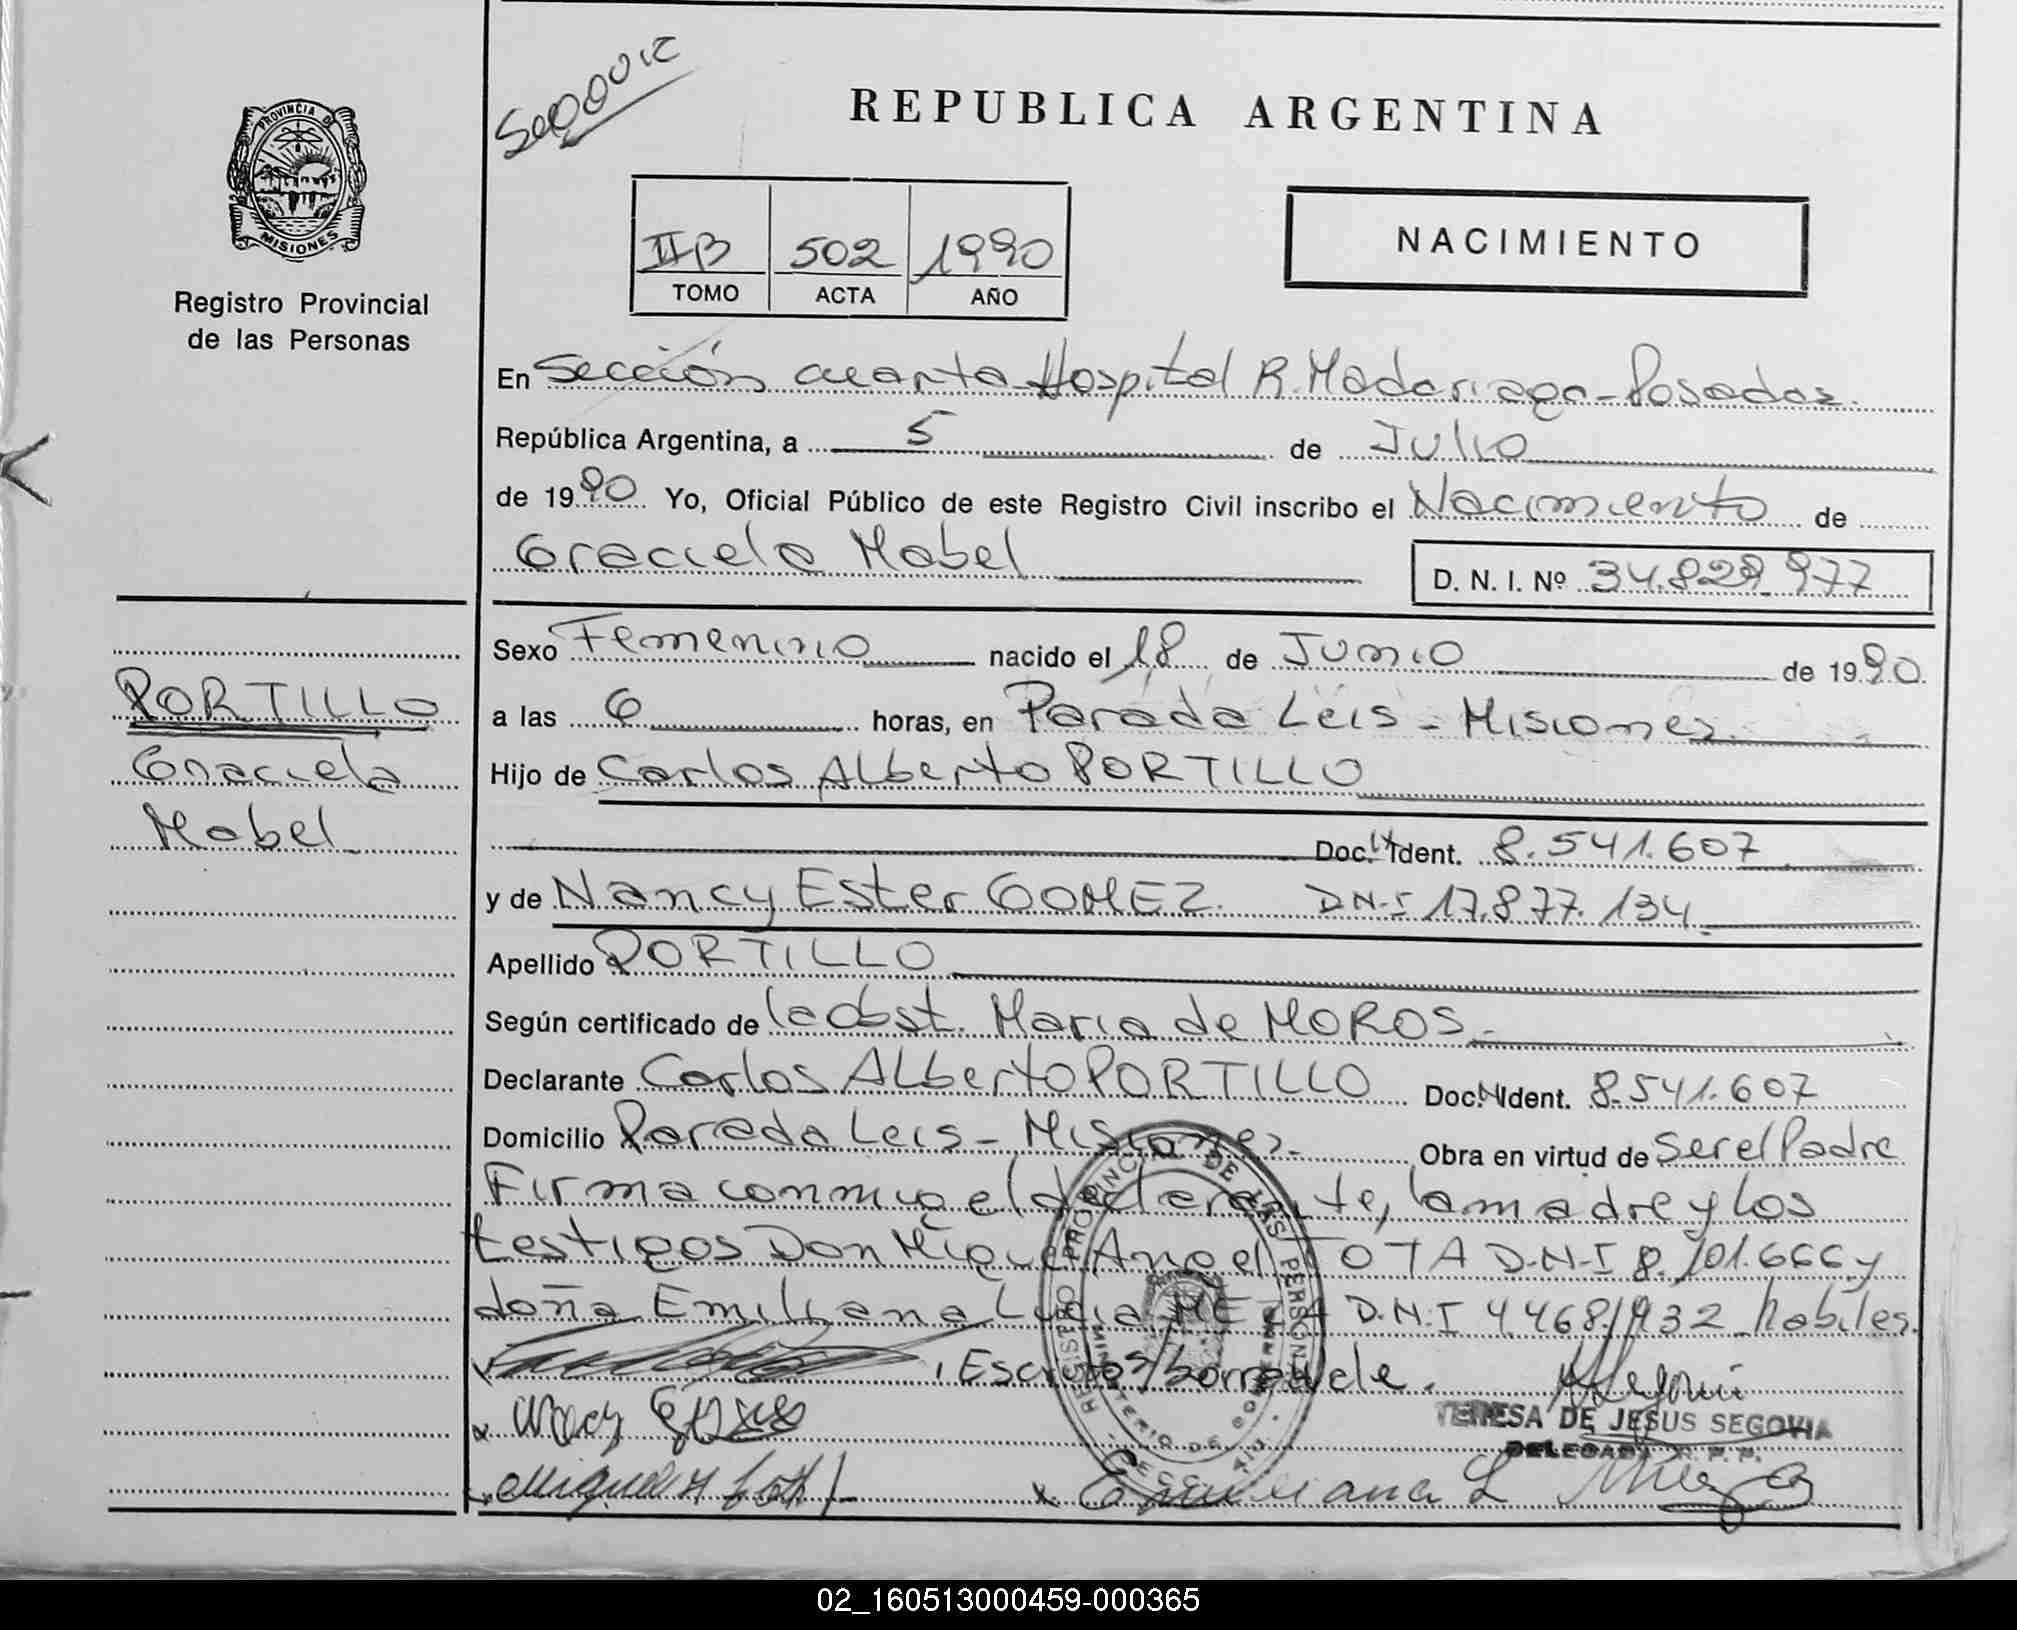 PROVINCIA DE
MISIONES
Registro Provincial
de las Personas
REPUBLICA ARGENTINA
IIB 502 1990
TOMO ACTA AÑO
NACIMIENTO
En Sección cuarta Hospital R. Madariaga - Posadas.
República Argentina, a 5 de Julio
de 1990 Yo, Oficial Público de este Registro Civil inscribo el Nacimiento de
Graciela Mabel D. N. I. Nº 34.829.977
Sexo Femenino nacido el 18 de Junio de 1990
a las 6 horas, en Parada Leis - Misiones.
Hijo de Carlos Alberto PORTILLO
Doc. Ident. 8.541.607
y de Nancy Ester GOMEZ. D.N.I 17.877.134
Apellido PORTILLO
Según certificado de la obst. Maria de MOROS.
Declarante Carlos Alberto PORTILLO Doc. Ident. 8.541.607
Domicilio Parada Leis - Misiones. Obra en virtud de Ser el Padre
Firma conmigo el declarante, la madre y los
testigos Don Miguel Angel TOTA D.N.I 8. 101.666 y
doña Emiliana Lucia D.N.I 4.468.932 habiles.
PORTILLO
Graciela
Mabel
TERESA DE JESUS SEGOVIA
DELEGADA R. P. P.
Emiliana L
02_160513000459-000365